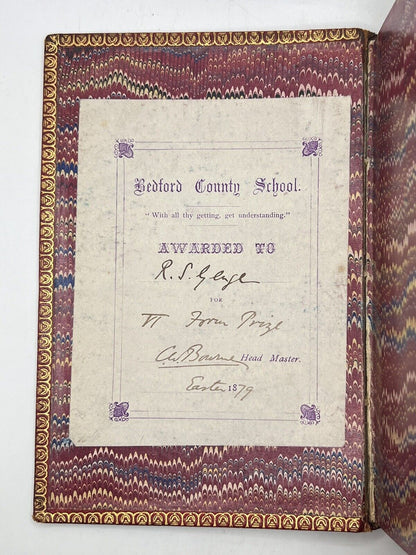 Bedford County School.
"With all thy getting, get understanding."
AWARDED TO
R. S.
FOR
VI Form Prize
C W Bourne Head Master.
Easter 1879